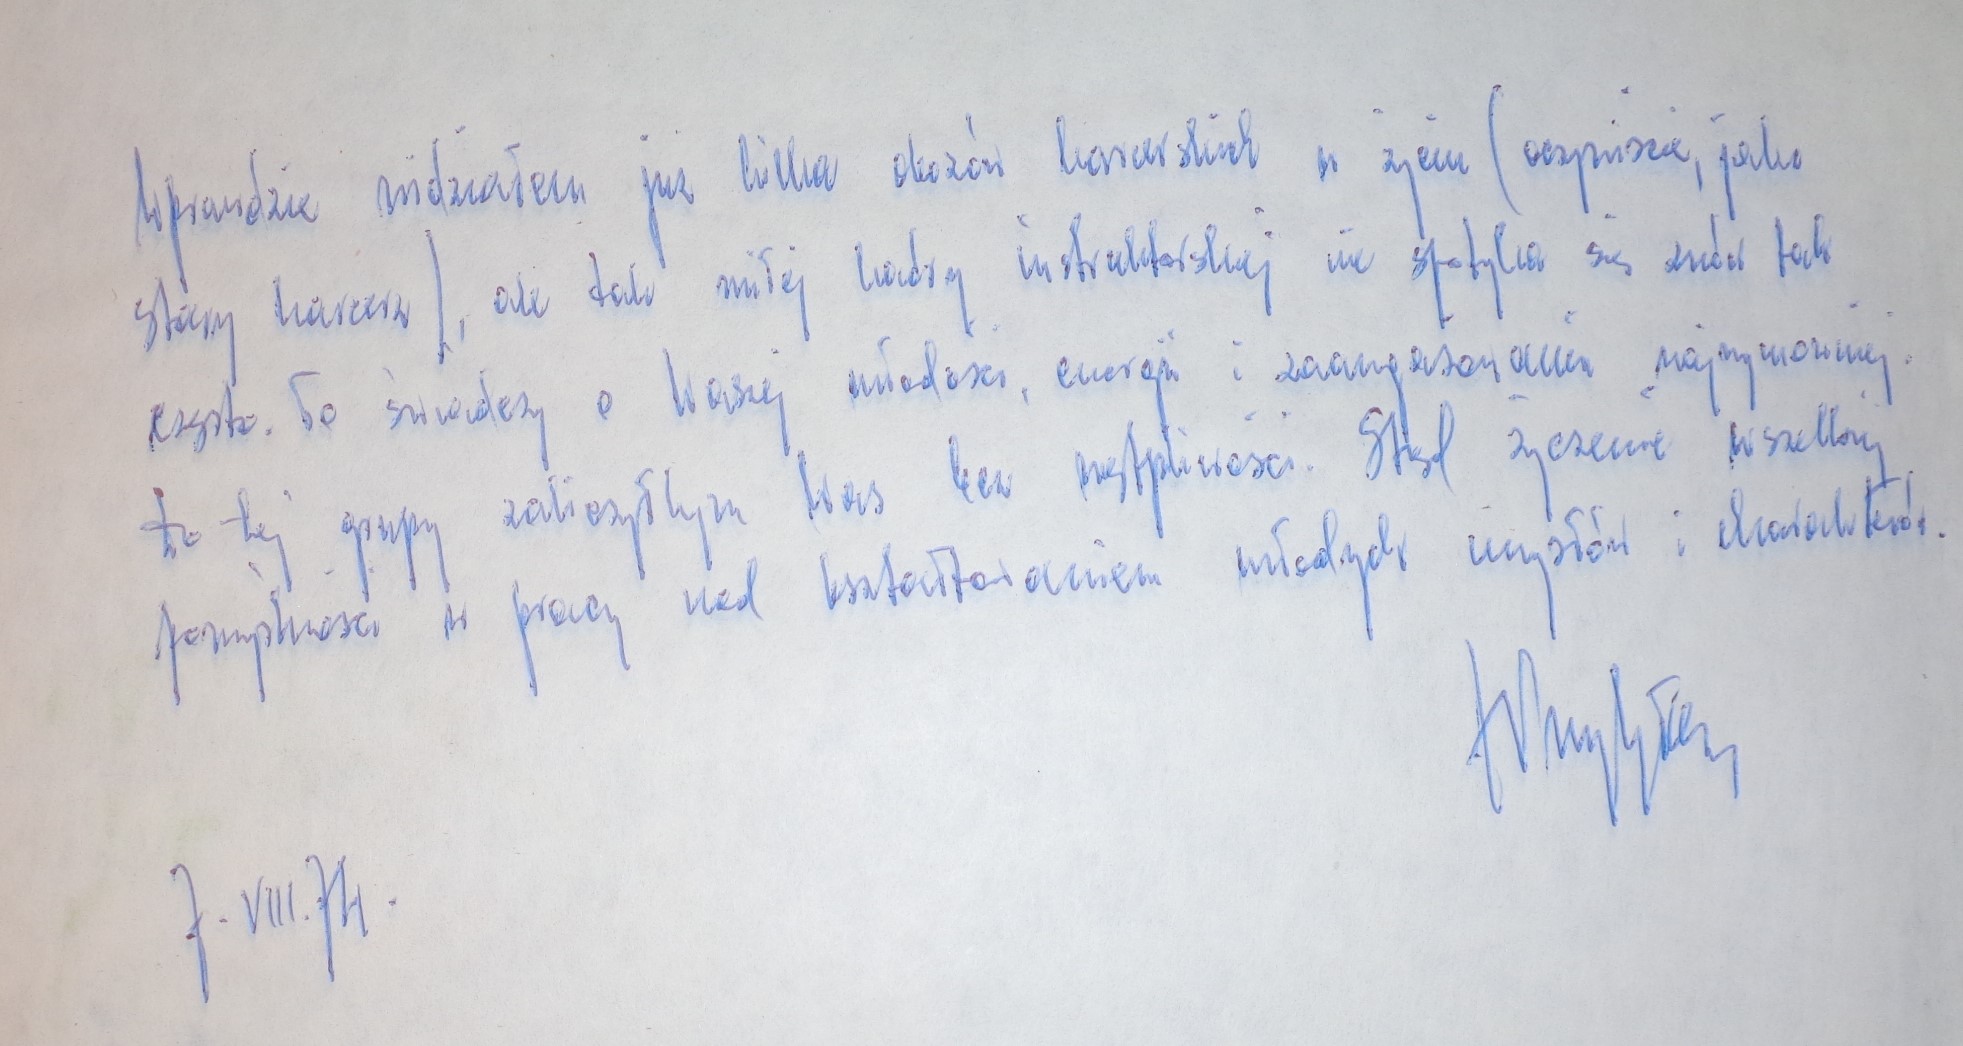 Wprawdzie widziałem już kilka obozów harcerskich w życiu (oczywiście, jako
stary harcerz), ale tak miłej kadry instruktorskiej nie spotyka się znów tak
często. To świadczy o Waszej młodości, energii i zaangażowaniu najwymowniej.
Do tej grupy zaliczyłbym Was bez wątpliwości. Stąd życzenie wszelkiej
pomyślności w pracy nad kształtowaniem młodych umysłów i charakterów.
7.VIII.74.